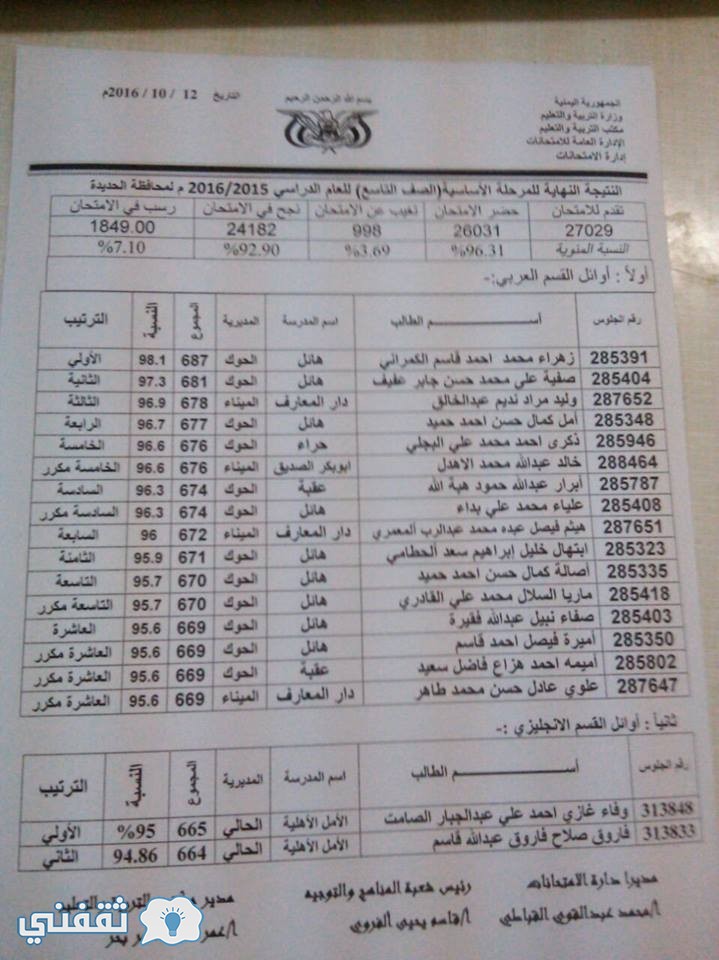 الجمهورية اليمنية
وزارة التربية والتعليم
مكتب التربية والتعليم
الإدارة العامة للامتحانات
إدارة الامتحانات
بسم الله الرحمن الرحيم
التاريخ 12 / 10 / 2016م
النتيجة النهاية للمرحلة الأساسية(الصف التاسع) للعام الدراسي 2016/2015 م لمحافظة الحديدة
تقدم للامتحان حضر الامتحان تغيب عن الامتحان نجح في الامتحان رسب في الامتحان
27029 26031 998 24182 1849.00
النسبة المئوية %96.31 %3.69 %92.90 %7.10
أولاً : أوائل القسم العربي:-
رقم الجلوس أســـم الطالب اسم المدرسة المديرية المجموع النسبة الترتيب
285391 زهراء محمد احمد قاسم الكمراني هائل الحوك 687 98.1 الأولي
285404 صفية علي محمد حسن جابر عفيف هائل الحوك 681 97.3 الثانية
287652 وليد مراد نديم عبدالخالق دار المعارف الميناء 678 96.9 الثالثة
285348 أمل كمال حسن احمد حميد هائل الحوك 677 96.7 الرابعة
285946 ذكرى احمد محمد علي البجلي حراء الحوك 676 96.6 الخامسة
288464 خالد عبدالله محمد الاهدل ابوبكر الصديق الميناء 676 96.6 الخامسة مكرر
285787 أبرار عبدالله حمود هبة الله عقبة الحوك 674 96.3 السادسة
285408 علياء محمد علي بداء هائل الحوك 674 96.3 السادسة مكرر
287651 هيثم فيصل عبده محمد عبدالرب المعمري دار المعارف الميناء 672 96 السابعة
285323 ابتهال خليل إبراهيم سعد الحطامي هائل الحوك 671 95.9 الثامنة
285335 أصالة كمال حسن احمد حميد هائل الحوك 670 95.7 التاسعة
285418 ماريا السلال محمد علي القادري هائل الحوك 670 95.7 التاسعة مكرر
285403 صفاء نبيل عبدالله فقيرة هائل الحوك 669 95.6 العاشرة
285350 أميرة فيصل احمد قاسم هائل الحوك 669 95.6 العاشرة مكرر
285802 أميمه احمد هزاع فاضل سعيد عقبة الحوك 669 95.6 العاشرة مكرر
287647 علوي عادل حسن محمد طاهر دار المعارف الميناء 669 95.6 العاشرة مكرر
ثانياً : أوائل القسم الانجليزي :-
رقم الجلوس أســـم الطالب اسم المدرسة المديرية المجموع النسبة الترتيب
313848 وفاء غازي احمد علي عبدالجبار الصامت الأمل الأهلية الحالي 665 %95 الأولي
313833 فاروق صلاح فاروق عبدالله قاسم الأمل الأهلية الحالي 664 94.86 الثاني
مديرا دارة الامتحانات رئيس شعبة المناهج والتوجيه مدير التربية والتعليم
أ/محمد عبدالقوي القباطي أ/قاسم يحيى القروي أ/عمر بحر
ثقفني